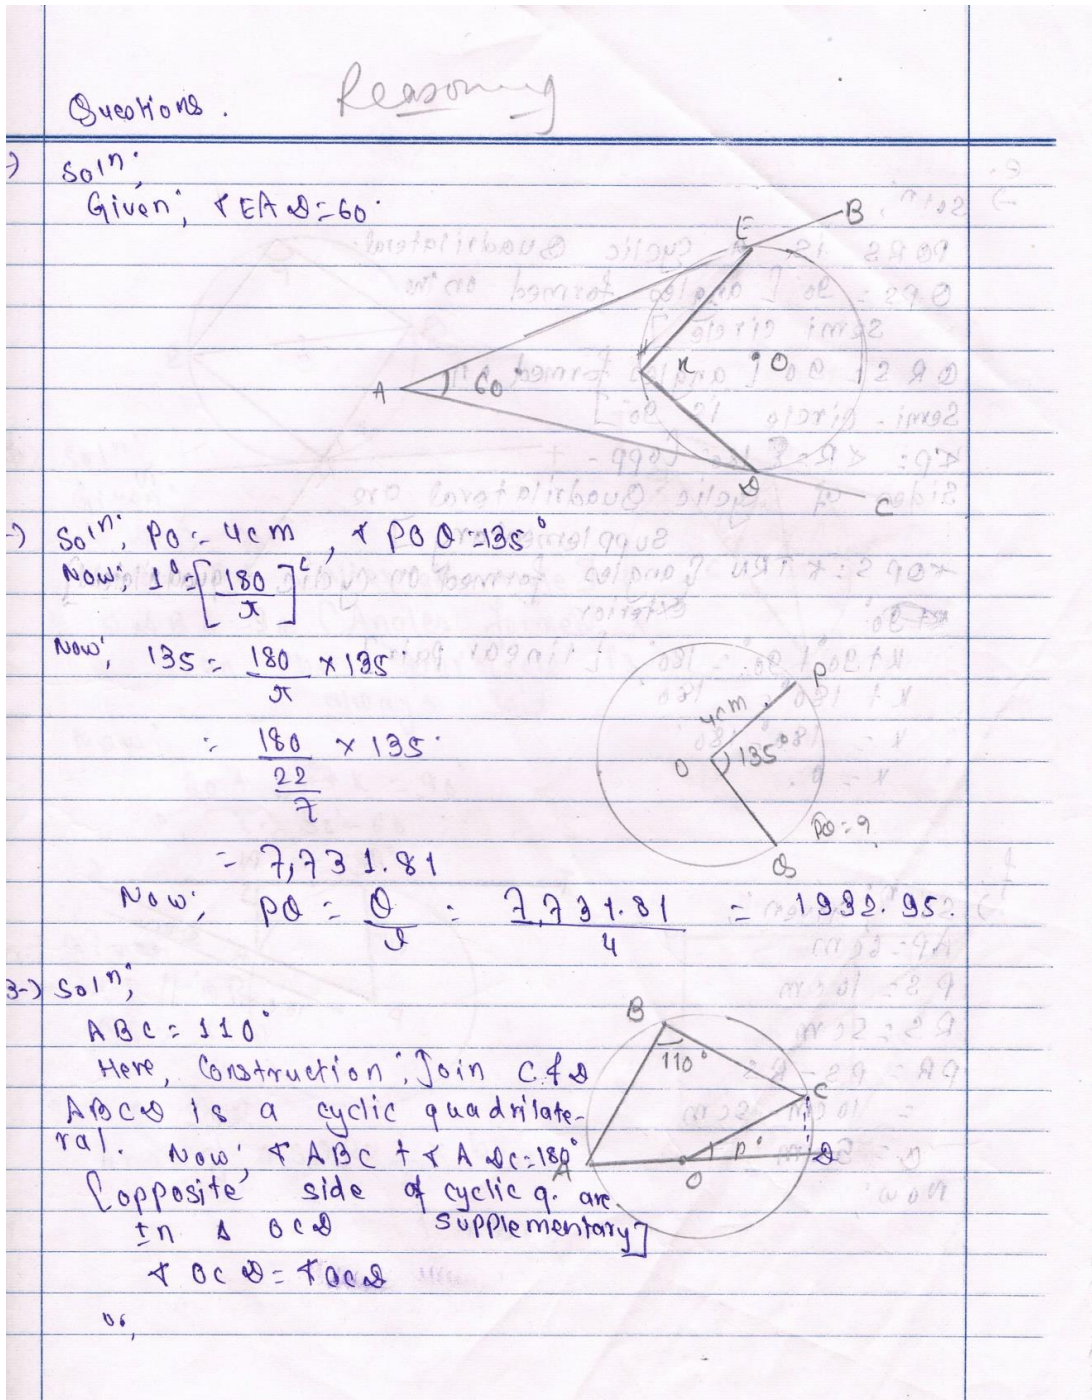 Questions. Reasoning
-) Solⁿ;
Given; ∠EAD=60°
E B
A 60° x O
D C
-) Solⁿ; PO = 4cm, ∠POQ=135°
Now; 1° = [180/π]ᶜ
Now; 135 = 180/π × 135°
= 180/(22/7) × 135°
P
4cm
O 135°
PQ = ?
Q
= 7,731.81
Now; PQ = θ/l = 7,731.81/4 = 1932.95.
3-) Solⁿ;
ABC = 110°
Here, Construction; Join C & D
ABCD is a cyclic quadrilate-
ral. Now; ∠ABC + ∠ADC=180°
[opposite side of cyclic q. are
supplementary]
In Δ OCD
∠OCD = ∠OCD
or,
B
110°
C
A O P° D